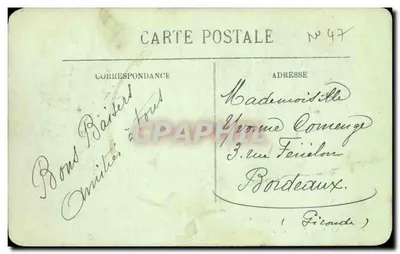 CARTE POSTALE
N° 47
CORRESPONDANCE
ADRESSE
Bons Baisers
Amitiés à tous
Mademoiselle
Yvonne Comenge
3. rue Fénelon
Bordeaux.
(Gironde)
CPHARTE